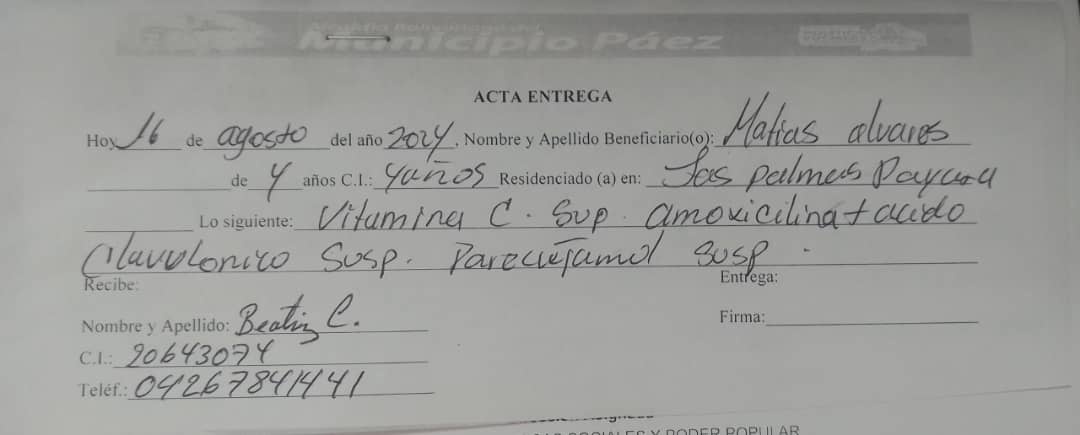 Alcaldía Bolivariana del
Municipio Páez
ACTA ENTREGA
Hoy 16 de agosto del año 2024. Nombre y Apellido Beneficiario(o): Matias alvares
de 4 años C.I.: 4años Residenciado (a) en: Las palmas Payara
Lo siguiente: Vitamina C. Sup. amoxicilina + acido
Clavulonico Susp. Paracetamol Susp.
Recibe: Entrega:
Nombre y Apellido: Beatriz C. Firma:
C.I.: 20643074
Teléf.: 04267841441
SOCIALES Y PODER POPULAR